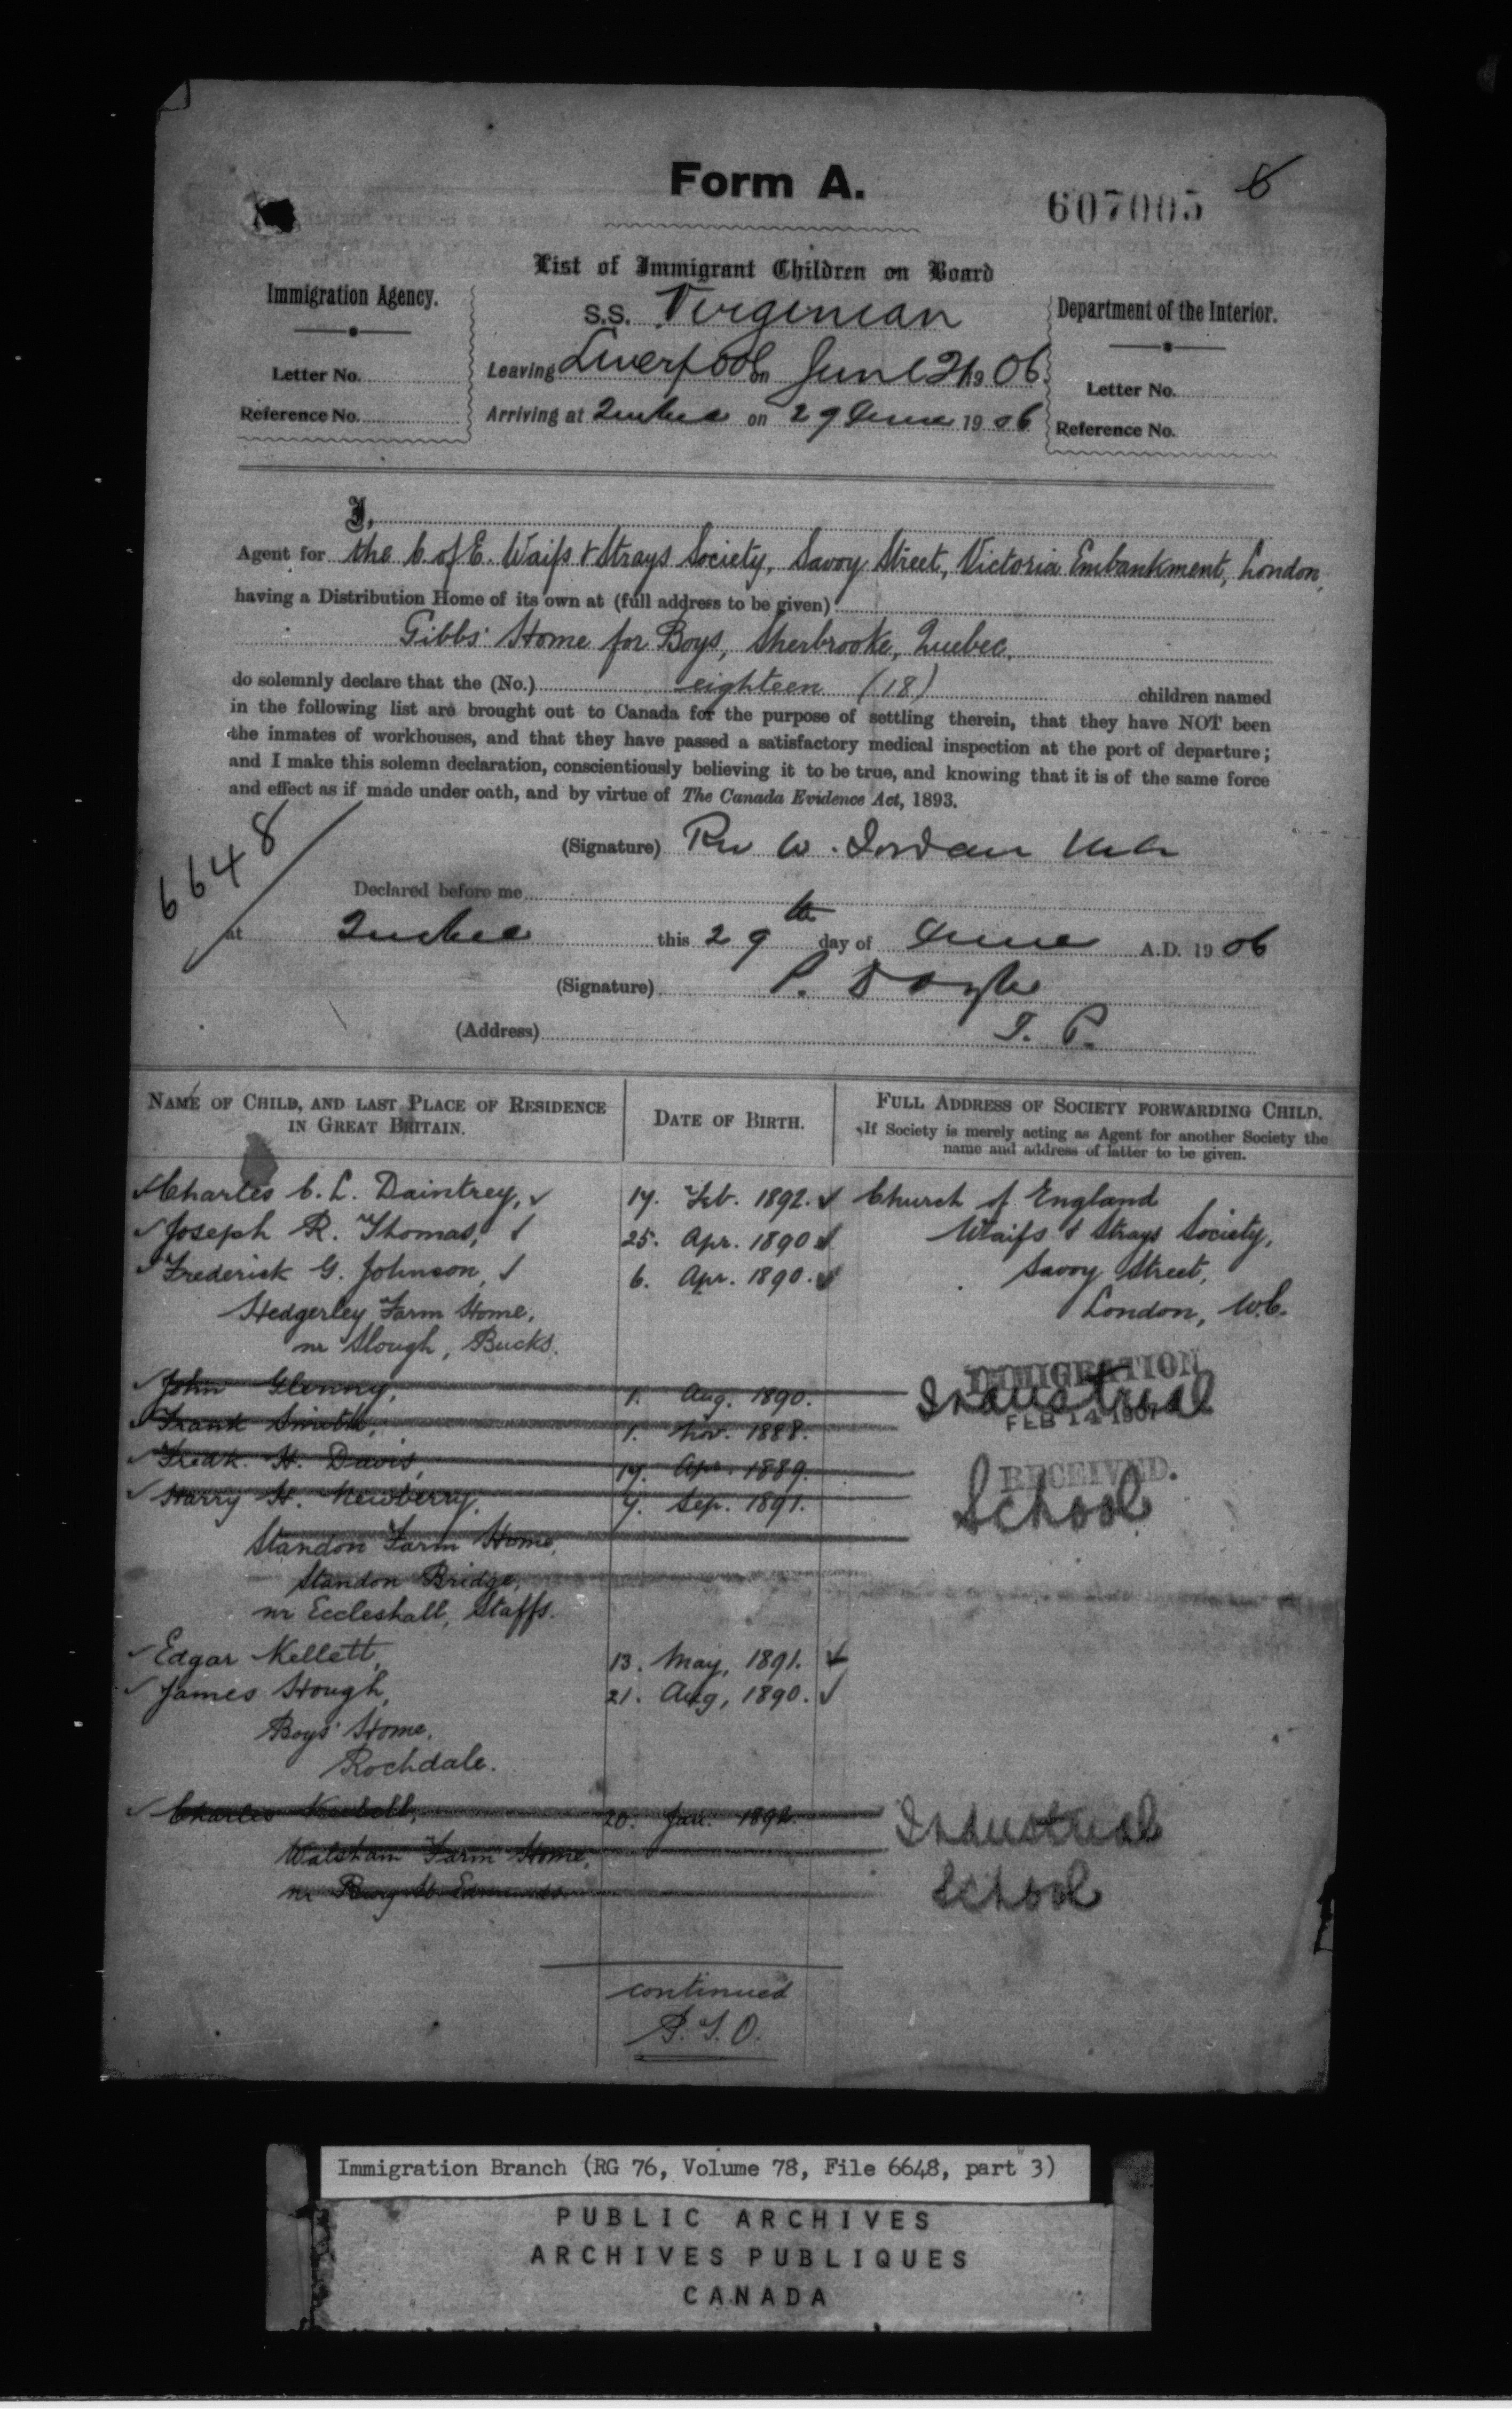 Form A.
607005
6
List of Immigrant Children on Board
Immigration Agency.
S.S. Virginian
Department of the Interior.
Letter No.
Leaving Liverpool on June 21 1906
Letter No.
Reference No.
Arriving at Quebec on 29 June 1906
Reference No.
I,
Agent for the C. of E. Waifs & Strays Society, Savoy Street, Victoria Embankment, London,
having a Distribution Home of its own at (full address to be given)
Gibbs' Home for Boys, Sherbrooke, Quebec.
do solemnly declare that the (No.) eighteen (18) children named
in the following list are brought out to Canada for the purpose of settling therein, that they have NOT been
the inmates of workhouses, and that they have passed a satisfactory medical inspection at the port of departure;
and I make this solemn declaration, conscientiously believing it to be true, and knowing that it is of the same force
and effect as if made under oath, and by virtue of The Canada Evidence Act, 1893.
6648
(Signature) Rev W. Jordan
Declared before me
at Quebec this 29th day of June A.D. 1906
(Signature) P. Doyle
(Address) J. P.
NAME OF CHILD, AND LAST PLACE OF RESIDENCE IN GREAT BRITAIN.
DATE OF BIRTH.
FULL ADDRESS OF SOCIETY FORWARDING CHILD.
If Society is merely acting as Agent for another Society the
name and address of latter to be given.
Charles C. L. Daintrey, 17. Feb. 1892. Church of England
Joseph R. Thomas, 25. Apr. 1890 Waifs & Strays Society,
Frederick G. Johnson, 6. Apr. 1890. Savoy Street,
Hedgerley Farm Home, London, W.C.
nr Slough, Bucks.
John Glenny, 1. Aug. 1890.
IMMIGRATION
Industrial
FEB 14 1907
Frank Smith, 1. Nov. 1888.
Fredk. H. Davis, 17. Apr. 1889.
RECEIVED.
School
Harry H. Newberry, 7. Sep. 1891.
Standon Farm Home,
Standon Bridge,
nr Eccleshall, Staffs.
Edgar Kellett, 13. May, 1891.
James Hough, 21. Aug, 1890.
Boys' Home,
Rochdale.
Charles 20. Jan. Industrial
Walsham Farm Home,
nr Bury St. Edmunds. School
continued
P.T.O.
Immigration Branch (RG 76, Volume 78, File 6648, part 3)
PUBLIC ARCHIVES
ARCHIVES PUBLIQUES
CANADA